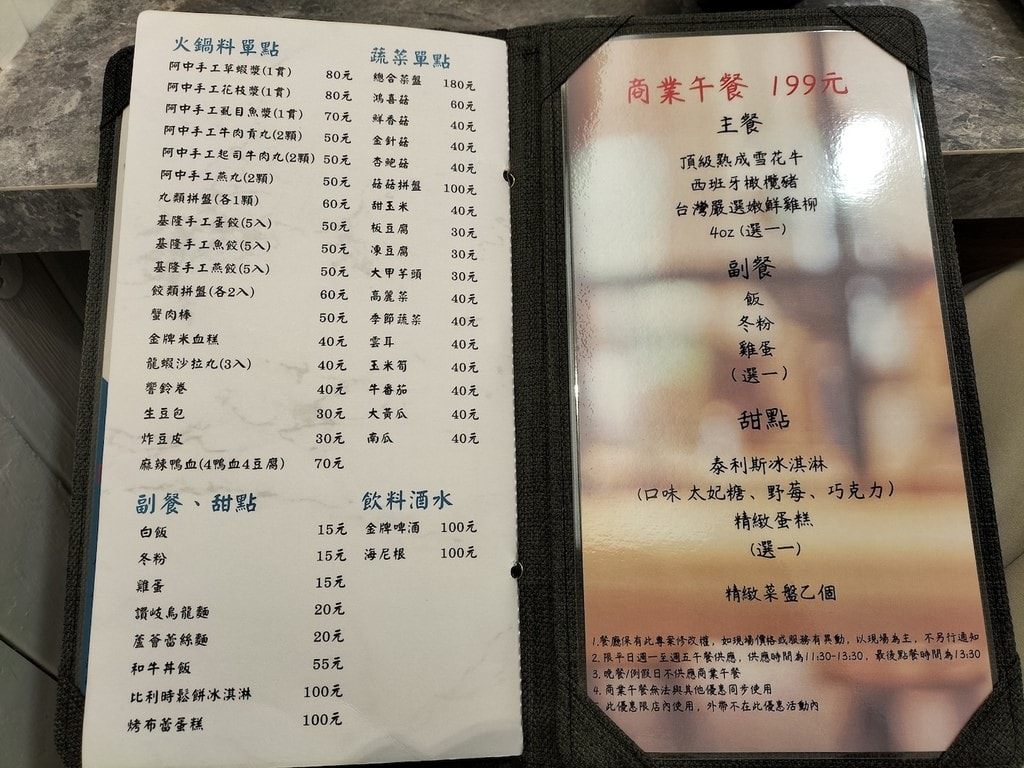 火鍋料單點
阿中手工草蝦漿(1貫) 80元
阿中手工花枝漿(1貫) 80元
阿中手工虱目魚漿(1貫) 70元
阿中手工牛肉貢丸(2顆) 50元
阿中手工起司牛肉丸(2顆) 50元
阿中手工燕丸(2顆) 50元
丸類拼盤(各1顆) 60元
基隆手工蛋餃(5入) 50元
基隆手工魚餃(5入) 50元
基隆手工燕餃(5入) 50元
餃類拼盤(各2入) 60元
蟹肉棒 50元
金牌米血糕 40元
龍蝦沙拉丸(3入) 40元
響鈴卷 40元
生豆包 30元
炸豆皮 30元
麻辣鴨血(4鴨血4豆腐) 70元
蔬菜單點
總合菜盤 180元
鴻喜菇 60元
鮮香菇 40元
金針菇 40元
杏鮑菇 40元
菇菇拼盤 100元
甜玉米 40元
板豆腐 30元
凍豆腐 30元
大甲芋頭 30元
高麗菜 40元
季節蔬菜 40元
雲耳 40元
玉米筍 40元
牛番茄 40元
大黃瓜 40元
南瓜 40元
副餐、甜點
白飯 15元
冬粉 15元
雞蛋 15元
讚岐烏龍麵 20元
蘆薈蕾絲麵 20元
和牛丼飯 55元
比利時鬆餅冰淇淋 100元
烤布蕾蛋糕 100元
飲料酒水
金牌啤酒 100元
海尼根 100元
商業午餐 199元
主餐
頂級熟成雪花牛
西班牙橄欖豬
台灣嚴選嫩鮮雞柳
4oz (選一)
副餐
飯
冬粉
雞蛋
(選一)
甜點
泰利斯冰淇淋
(口味 太妃糖、野莓、巧克力)
精緻蛋糕
(選一)
精緻菜盤乙個
1.餐廳保有此專案修改權，如現場價格或服務有異動，以現場為主，不另行通知
2.限平日週一至週五午餐供應，供應時間為11:30-13:30，最後點餐時間為13:30
3.晚餐/例假日不供應商業午餐
4.商業午餐無法與其他優惠同步使用
此優惠限店內使用，外帶不在此優惠活動內